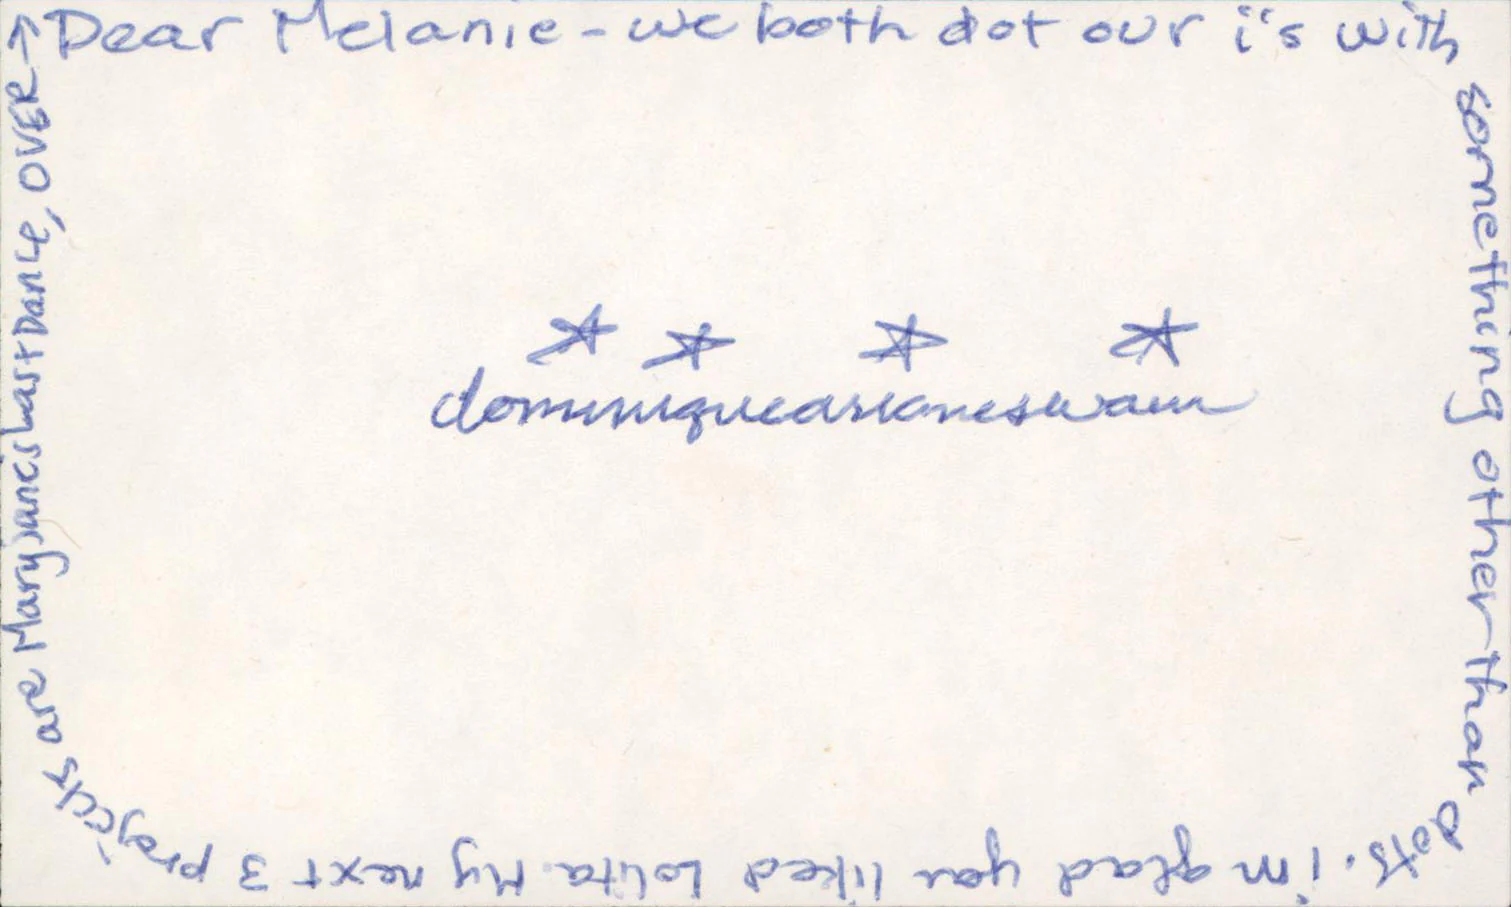 Dear Melanie - we both dot our i's with
something other than
dots. i'm glad you liked Lolita. My next 3 projects
are Maryjanes Last Dance, OVER →
dominiquearianeswain